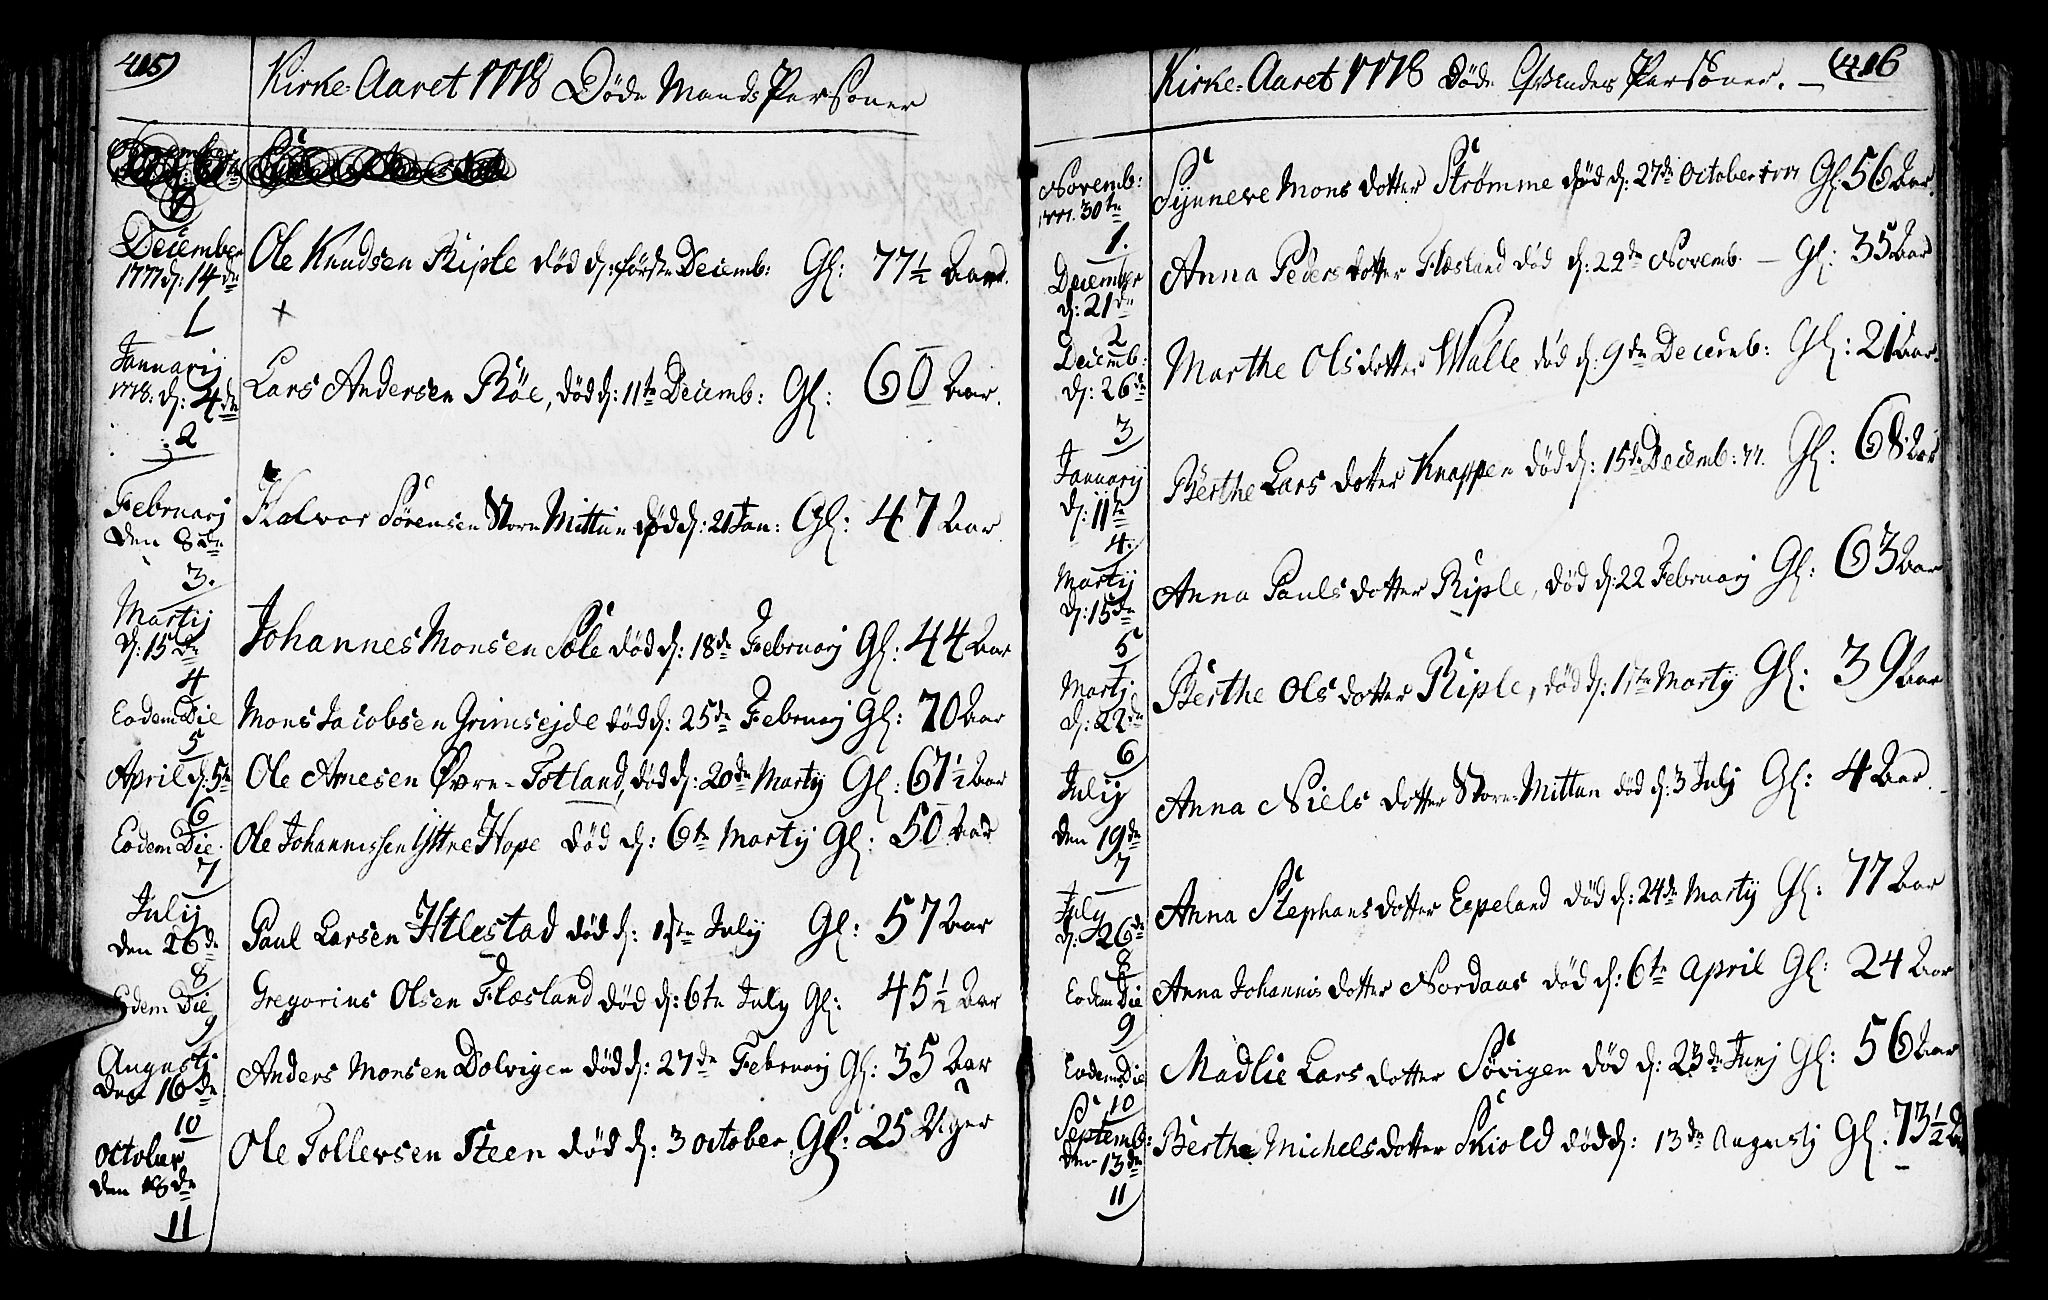 415)
Kirke-Aaret 1778 Døde Mands Personer
December 1777 d: 14de 1 Ole Knudsen Riple død d: første Decemb: Gl: 77½ Aar
Januarij 1778. d: 4de 2 Lars Andersen Röe, død d: 11te Decemb: Gl: 60 Aar.
Februarj den 8de 3. Halvor Sørensen Store Mittun død d: 21 Jan: Gl: 47 Aar
Martij d: 15de 4 Johannes Monsen Söle død d: 18de Februarj Gl: 44 Aar
Eodem Die 5 Mons Jacobsen Grimsejde død d: 25de Februarj Gl: 70 Aar
April d: 5te 6 Ole Arnesen Øvre-Totland, død d: 20de Martij Gl: 67½ Aar
Eodem Die. 7 Ole Johannissen Yttre Hope død d: 6te Martij Gl: 50 Aar
Julij den 26de 8 Paul Larsen Hlestad død d: 1ste Julij Gl: 57 Aar
Eodem Die 9 Gregorius Olsen Flæsland død d: 6te Julij Gl: 45½ Aar
Augustj den 16de 10 Anders Monsen Dolvigen død d: 27de Februarj Gl: 35 Aar
October den 18de 11 Ole Tollevsen Steen død d: 3 October, Gl: 25 Uger
Kirke-Aaret 1778 Døde Qvindes Personer. —
(416
Novemb: 1777. 30te 1. Synneve Mons dotter Strømme død d: 27de October 1777 Gl: 56 Aar.
December d: 21de 2 Anna Peders dotter Flæsland død d: 22de Novemb. — Gl: 35 Aar
Decemb: d: 26de 3 Marthe Ols dotter Walle død d: 9de Decemb: Gl: 21 Aar.
Januarij d: 11te 4. Berthe Lars dotter Knappen død d: 15de Decemb: 77. Gl: 68 Aar
Martij d: 15de 5 Anna Pauls dotter Riple, død d: 22 Februarj Gl: 63 Aar
Martj d: 22de 6 Berthe Ols dotter Riple, død d: 11te Martij Gl: 39 Aar
Julij den 19de 7 Anna Niels dotter Store-Mittun død d: 3 Julij Gl: 4 Aar
July d: 26de 8 Anna Stephans dotter Espeland død d: 24de Martij Gl: 77 Aar
Eodem Die 9 Anna Johannis dotter Nordaas død d: 6te April Gl: 24 Aar
Eodem Die 10 Madlie Lars dotter Sövigen død d: 23de Junj Gl: 56 Aar
Septemb: den 13de 11 Berthe Michels dotter Skiold død d: 13de Augustj Gl: 73½